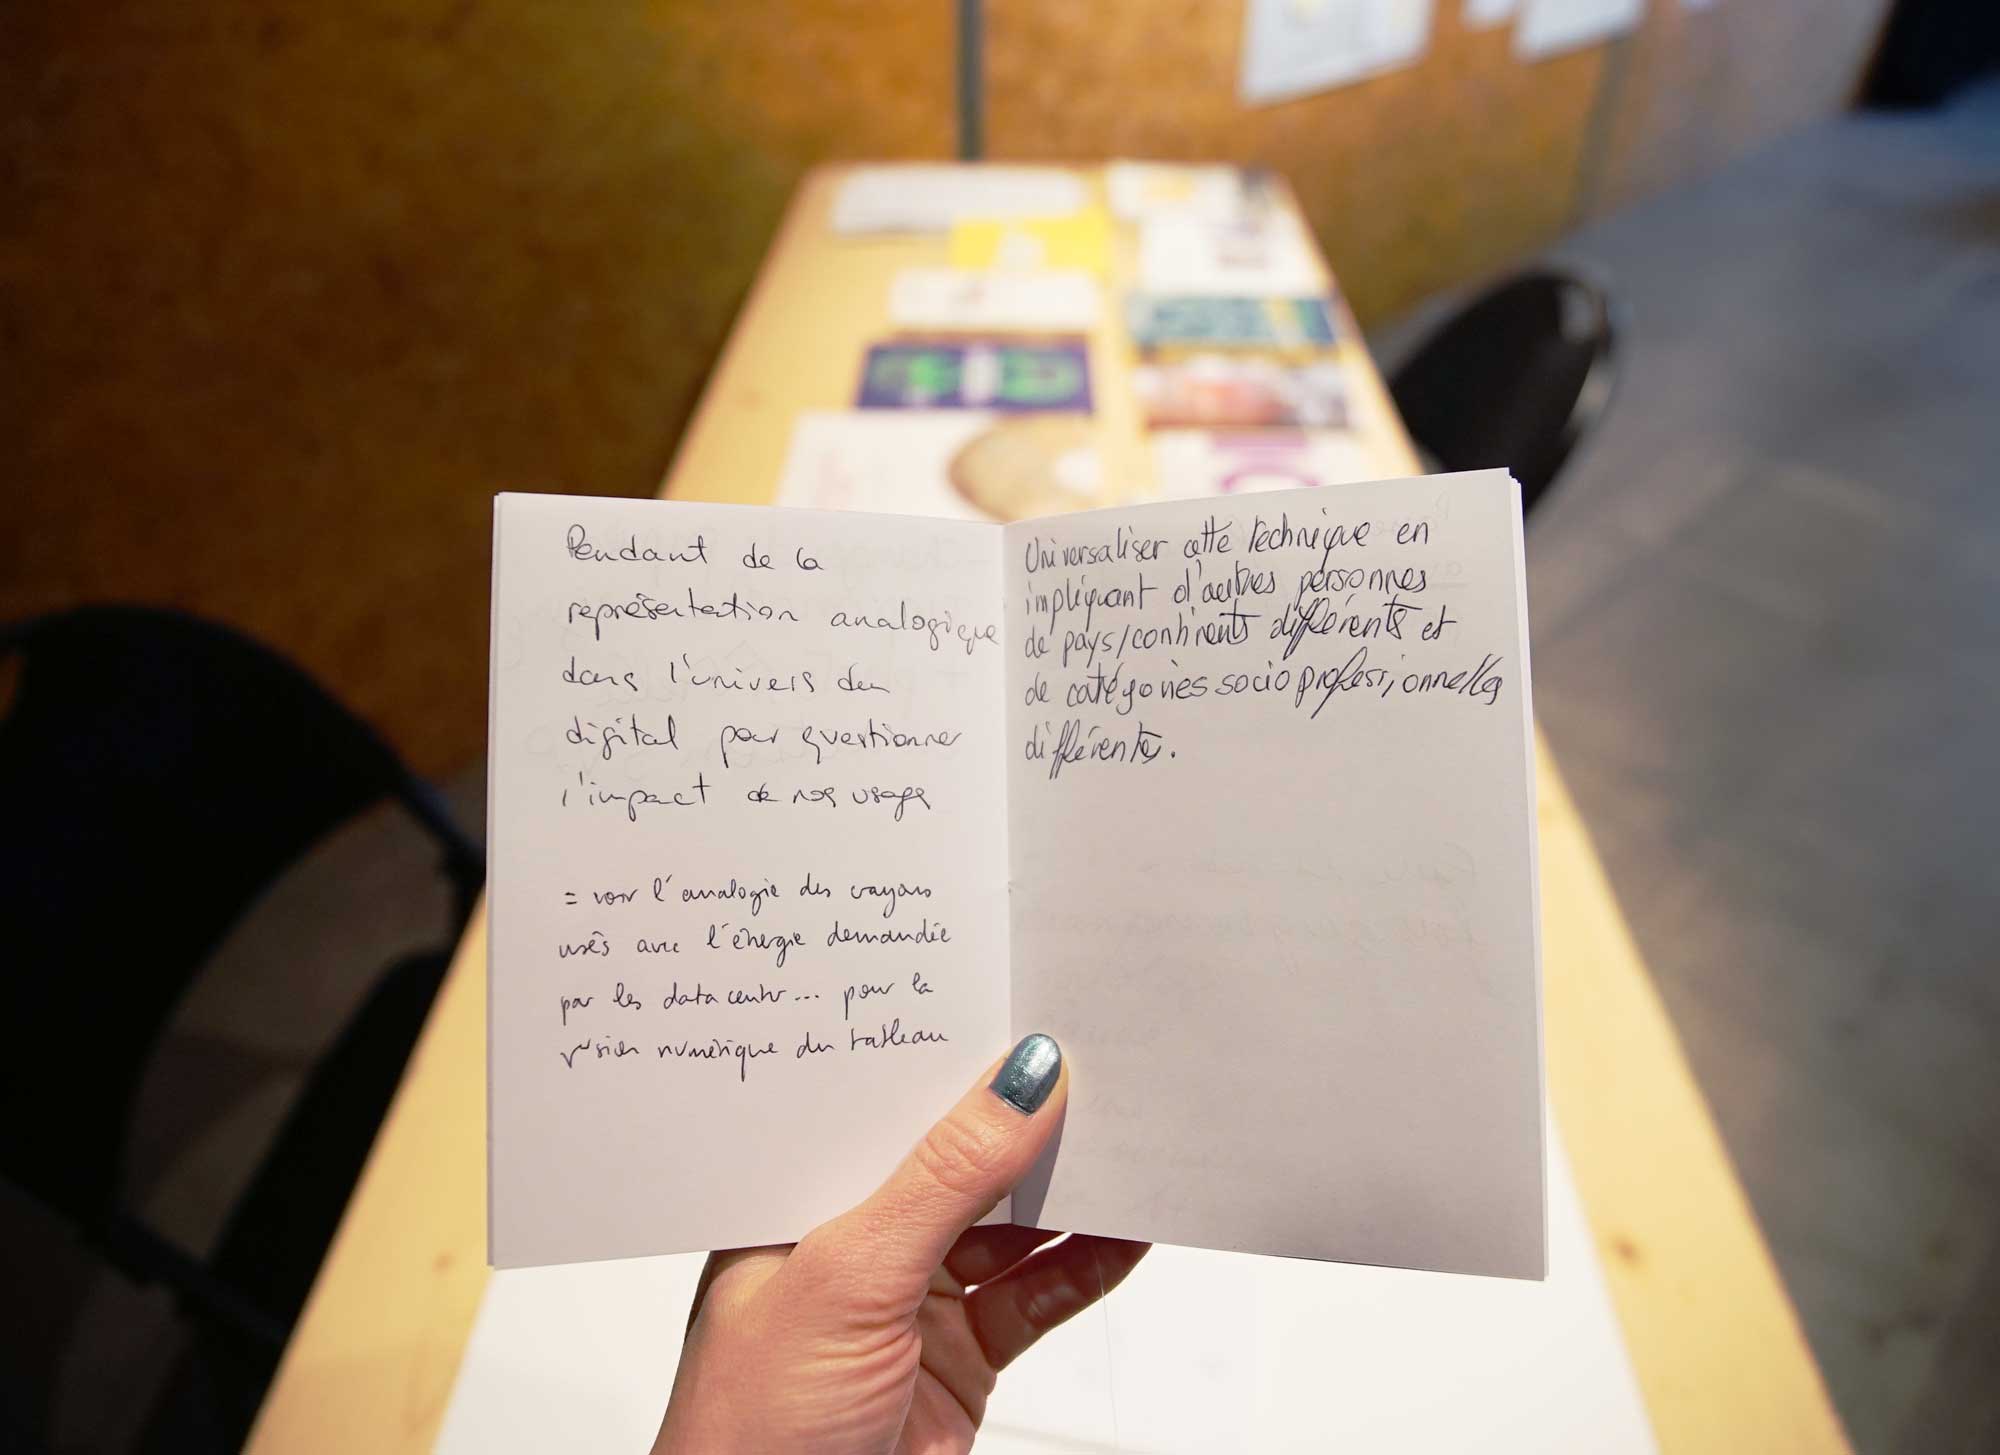 Pendant de la
représentation analogique
dans l'univers du
digital pour questionner
l'impact de nos usages
= voir l'analogie des crayons
usés avec l'énergie demandée
par les data center... pour la
version numérique du tableau
Universaliser cette technique en
impliquant d'autres personnes
de pays/continents différents et
de catégories socio professionnelles
différentes.